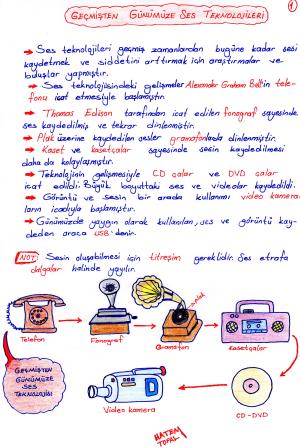 GEÇMİŞTEN GÜNÜMÜZE SES TEKNOLOJİLERİ
1
→ Ses teknolojileri geçmiş zamanlardan bugüne kadar sesi
kaydetmek ve şiddetini arttırmak için araştırmalar ve
buluşlar yapmıştır.
→ Ses teknolojisindeki gelişmeler Alexander Graham Bell'in tele-
fonu icat etmesiyle başlamıştır.
→ Thomas Edison tarafından icat edilen fonograf sayesinde
ses kaydedilmiş ve tekrar dinlenmiştir.
→ Plak üzerine kaydedilen sesler gramofonlarla dinlenmiştir.
→ Kaset ve kasetçalar sayesinde sesin kaydedilmesi
daha da kolaylaşmıştır.
→ Teknolojinin gelişmesiyle CD çalar ve DVD çalar
icat edildi. Büyük boyuttaki ses ve videolar kaydedildi.
→ Görüntü ve sesin bir arada kullanımı video kamera
ların icadıyla başlamıştır.
→ Günümüzde yaygın olarak kullanılan, ses ve görüntü kay-
deden araca USB denir.
NOT: Sesin oluşabilmesi için titreşim gereklidir. Ses etrafa
dalgalar halinde yayılır.
Telefon
Fonograf
Gramofon
Kasetçalar
GEÇMİŞTEN
GÜNÜMÜZE
SES
TEKNOLOJİSİ
Video kamera
CD-DVD
HATEM
TOPAL